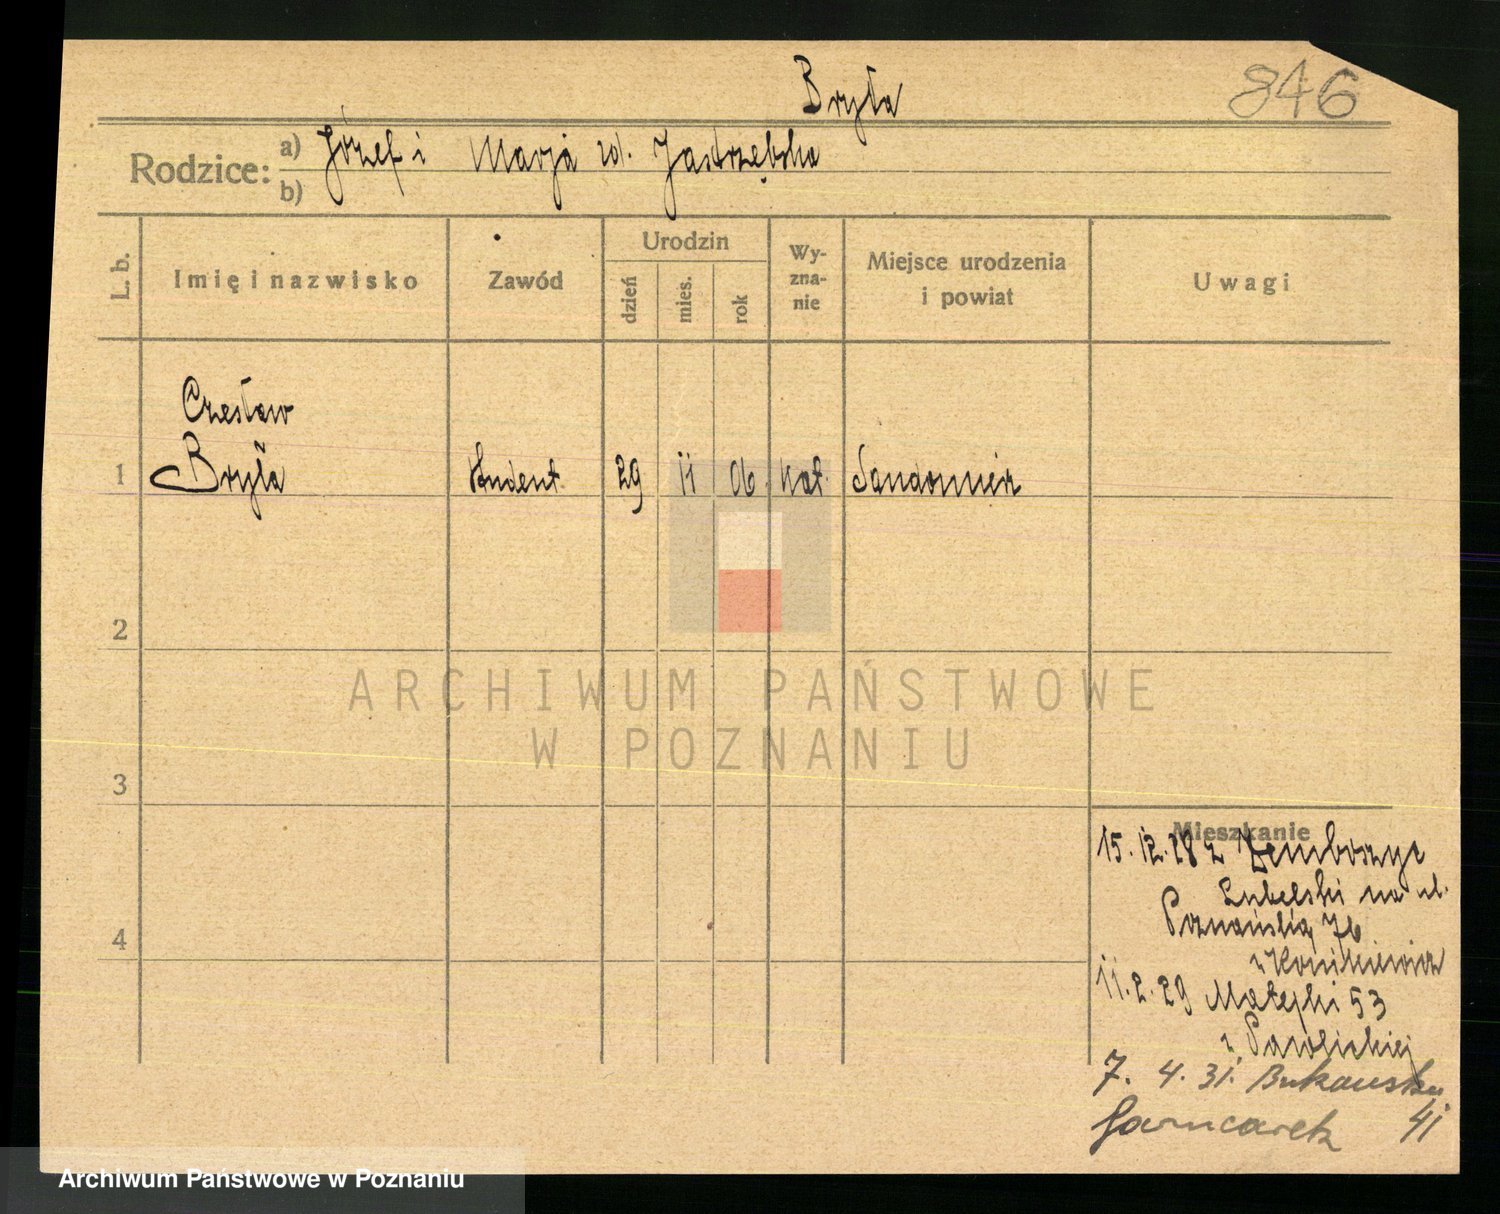 Bryła
846
Rodzice:
a) Józef i Marja zd. Jastrzębska
b)
L. b.
Imię i nazwisko
Zawód
Urodzin
dzień
mies.
rok
Wy-
zna-
nie
Miejsce urodzenia
i powiat
Uwagi
Czesław
1 Bryła student 29 11 06 kat. Sandomierz
2
ARCHIWUM PAŃSTWOWE
W POZNANIU
3
Mieszkanie
15.12.28 z Zemborzyc
Lubelski na ul.
Poznańską 76
4
11.2.29 Matejki 53
7. 4. 31. Bukowska
Garncarek 41
Archiwum Państwowe w Poznaniu